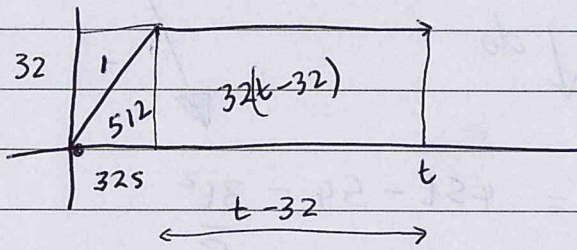 32
1
512
32(t-32)
32s
t
t-32